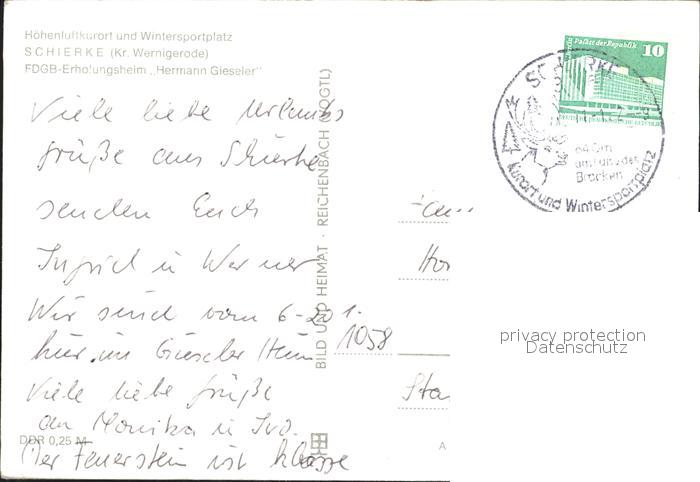 Höhenluftkurort und Wintersportplatz
SCHIERKE (Kr. Wernigerode)
FDGB-Erholungsheim „Hermann Gieseler"
Viele liebe Urlaubs
grüße aus Schierke
senden Euch
Ingrid u Werner
Wir sind vom 6-20 1.
hier im Gieseler Heim
Viele liebe Grüße
an Monika u
Der Feuerstein ist klasse
DDR 0,25 M
BILD UND HEIMAT · REICHENBACH (VOGTL)
Palast der Republik 10
DEUTSCHE DEMOKRATISCHE REPUBLIK
SCHIERKE
640 m
am Fuße des
Brocken
Kurort und Wintersportplatz
Ho
1058
Sta
A
privacy protection
Datenschutz